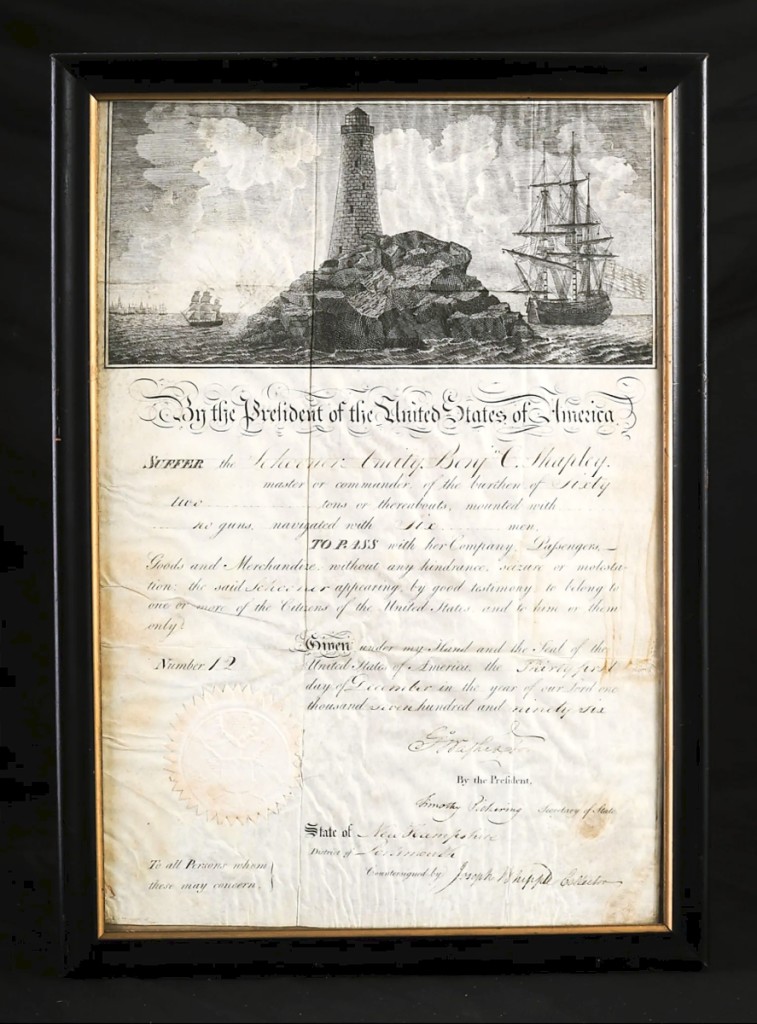 By the President of the United States of America
SUFFER the Schooner Amity, Benjn C. Shapley,
master or commander, of the burthen of Sixty
two tons or thereabouts, mounted with
no guns, navigated with Six men,
TO PASS with her Company, Passengers,
Goods and Merchandize, without any hindrance, seizure or molesta-
tion; the said Schooner appearing by good testimony to belong to
one or more of the Citizens of the United States and to him or them
only.
Given under my Hand and the Seal of the
Number 12
United States of America, the Thirty first
day of December in the year of our Lord one
thousand seven hundred and ninety six
Go Washington
By the President,
Timothy Pickering Secretary of State
State of New Hampshire
District of Portsmouth
Countersigned by Joseph Whipple Collector
To all Persons whom
these may concern.